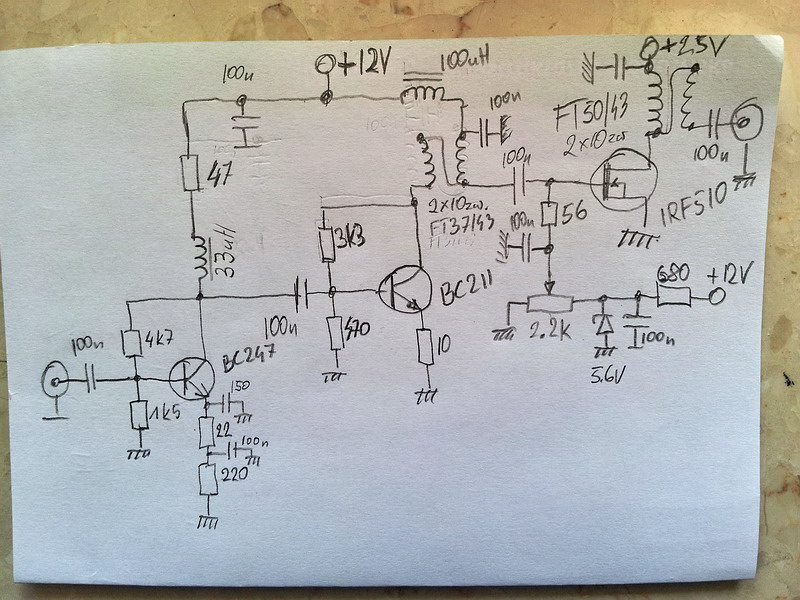 100n
+12V
100uH
+25V
100n
FT50/43
2x10zw.
100n
100n
47
33uH
3k3
2x10zw.
FT37/43
56
IRF510
100n
BC211
680
+12V
100n
470
2.2K
100n
5.6V
100n
4k7
BC247
10
1k5
150
22
100n
220